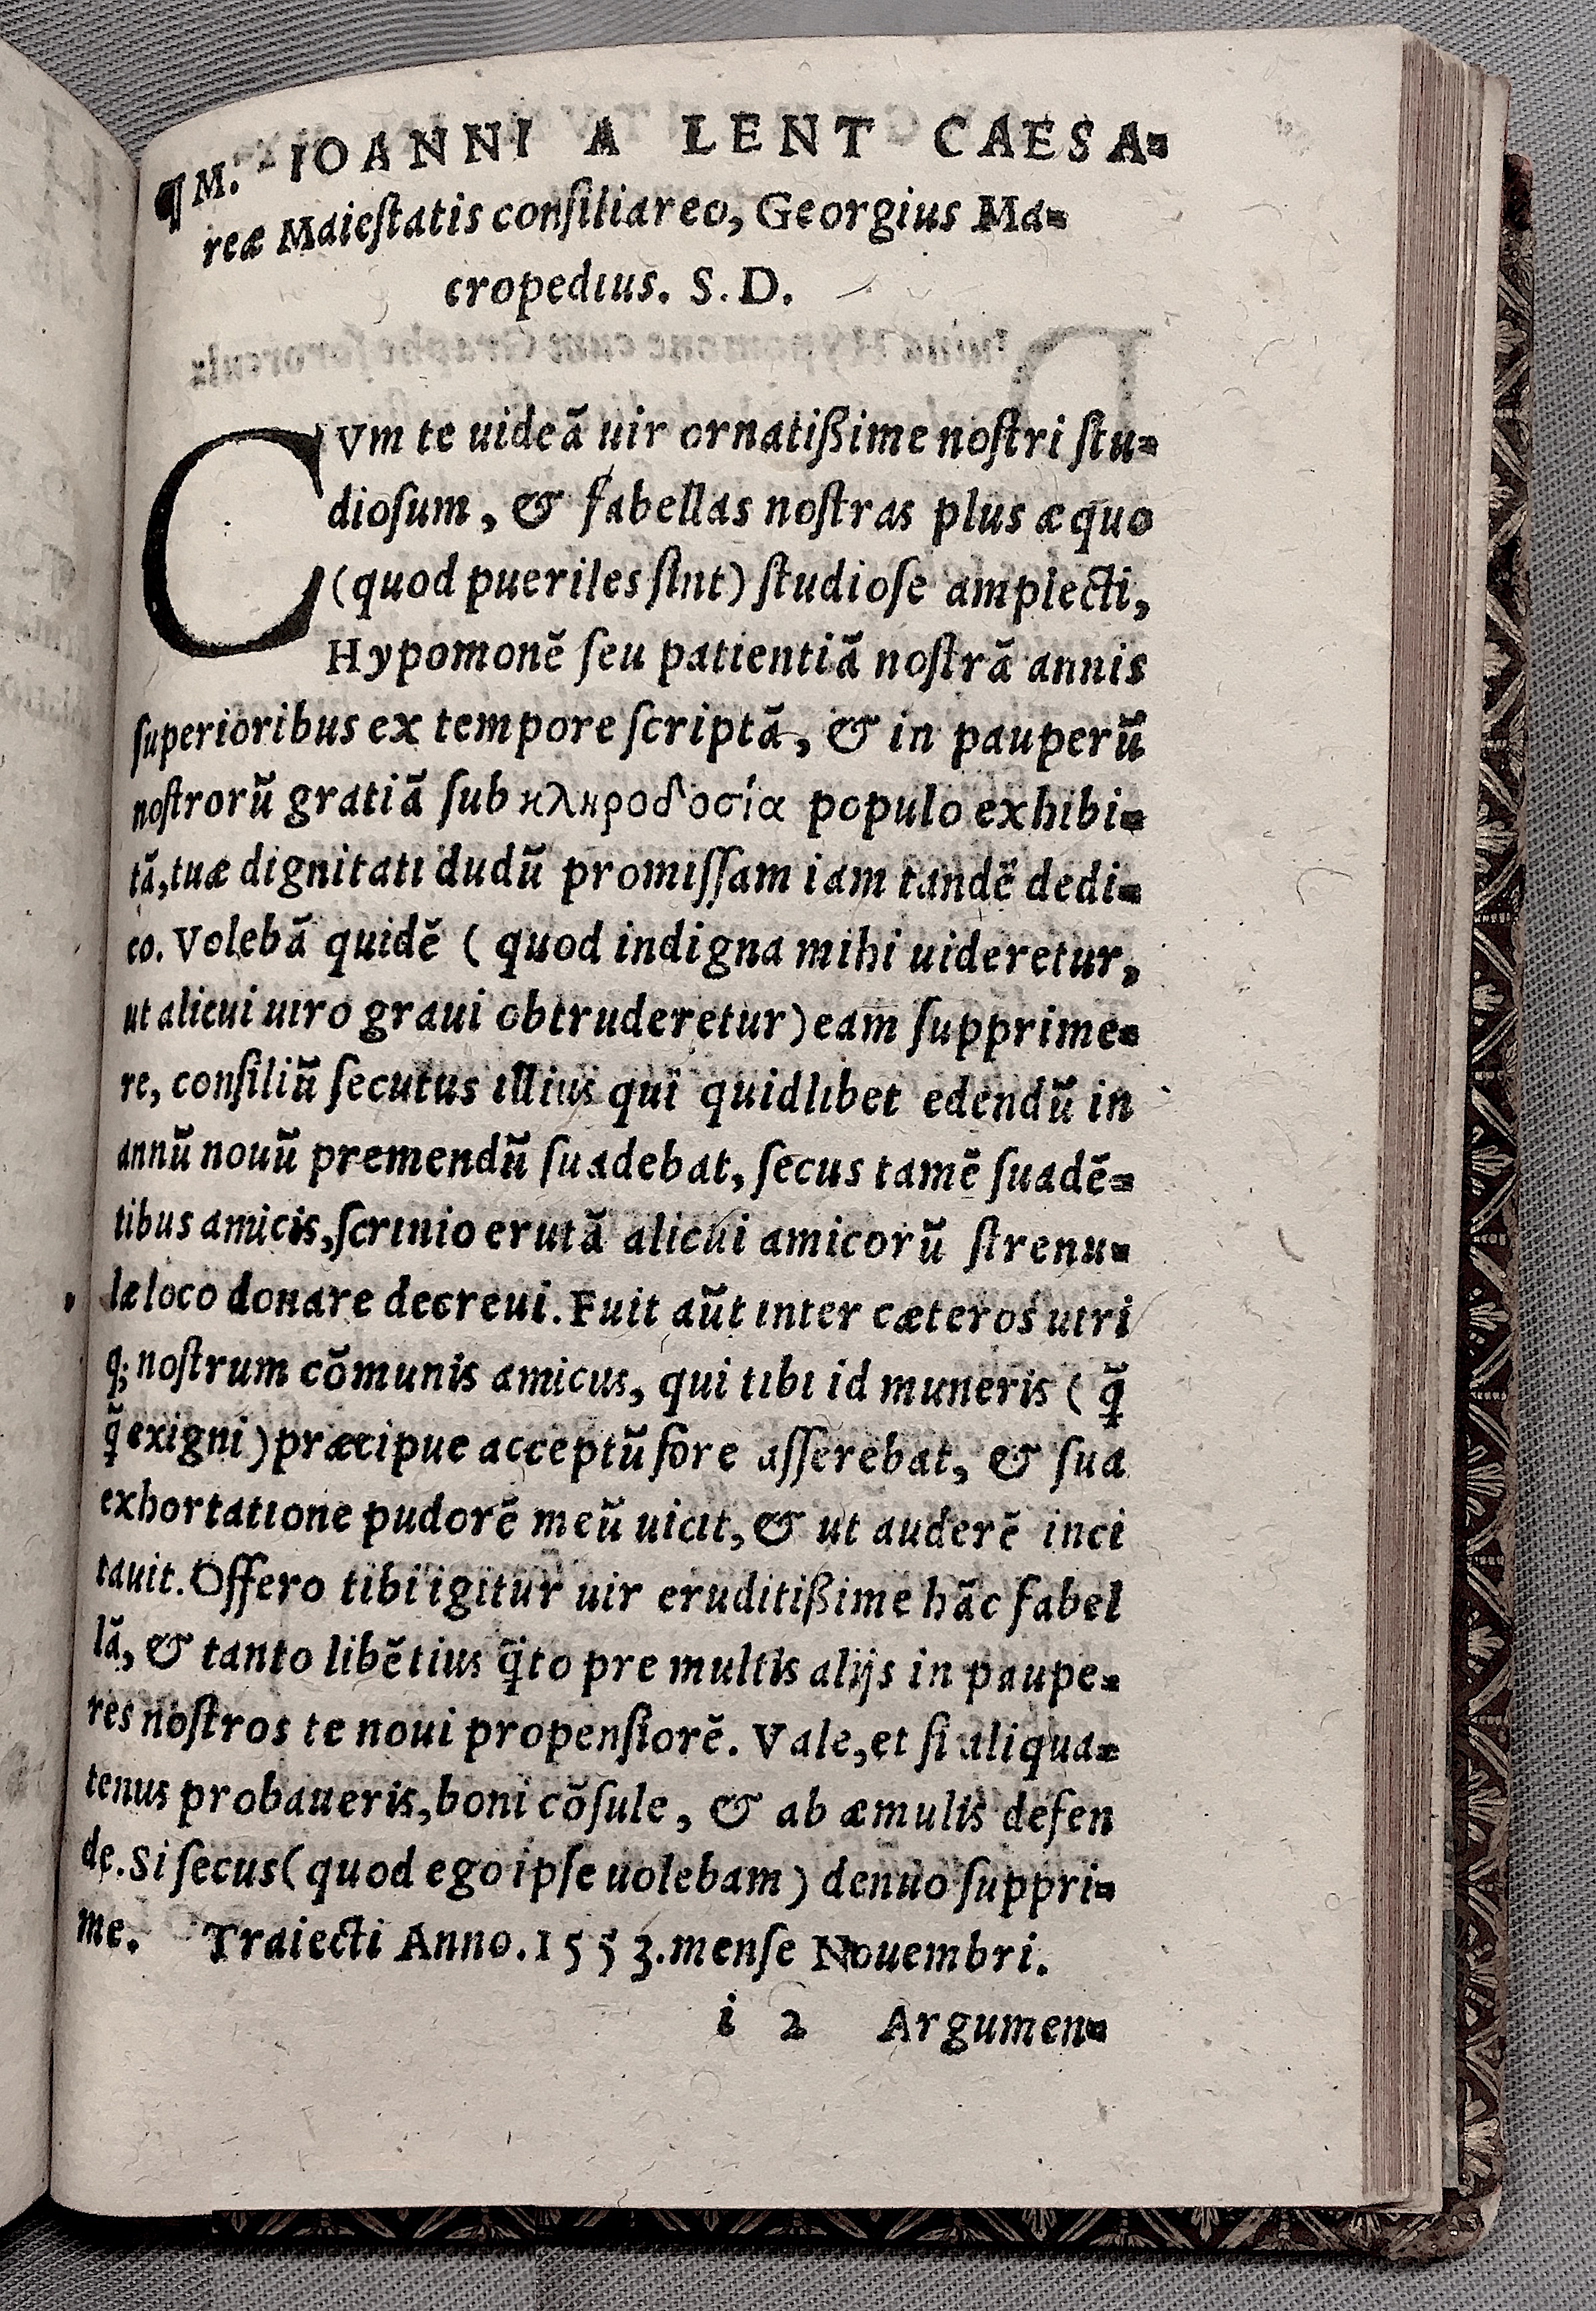 ¶M. IOANNI A LENT CAESA-
reæ Maieſtatis conſiliareo, Georgius Ma-
cropedius. S. D.
CVm te uideã uir ornatißime noſtri ſtu-
dioſum, & fabellas noſtras plus æquo
(quod pueriles ſint) ſtudioſe amplecti,
Hypomonẽ ſeu patientiã noſtrã annis
ſuperioribus ex tempore ſcriptã, & in pauperũ
noſtrorũ gratiã ſub κληροδοσία populo exhibi-
tã, tuæ dignitati dudũ promiſſam iam tandẽ dedi-
co. Volebã quidẽ ( quod indigna mihi uideretur,
ut alicui uiro graui obtruderetur) eam ſupprime-
re, conſiliũ ſecutus illius qui quidlibet edendũ in
annũ nouũ premendũ ſuadebat, ſecus tamẽ ſuadẽ-
tibus amicis, ſcrinio erutã alicui amicorũ ſtrenu-
læ loco donare decreui. Fuit aũt inter cæteros utri
q; noſtrum cõmunis amicus, qui tibi id muneris ( q̃
q̃ exigni) præcipue acceptũ fore aſſerebat, & ſua
exhortatione pudorẽ meũ uicit, & ut auderẽ inci
tauit. Offero tibi igitur uir eruditißime hãc fabel
lã, & tanto libẽtius q̃to pre multis alijs in paupe-
res noſtros te noui propenſiorẽ. Vale, et ſi aliqua-
tenus probaueris, boni cõſule, & ab æmulis defen
de. Si ſecus (quod ego ipſe uolebam) denuo ſuppri-
me. Traiecti Anno. 1553. menſe Nouembri.
i 2 Argumen-